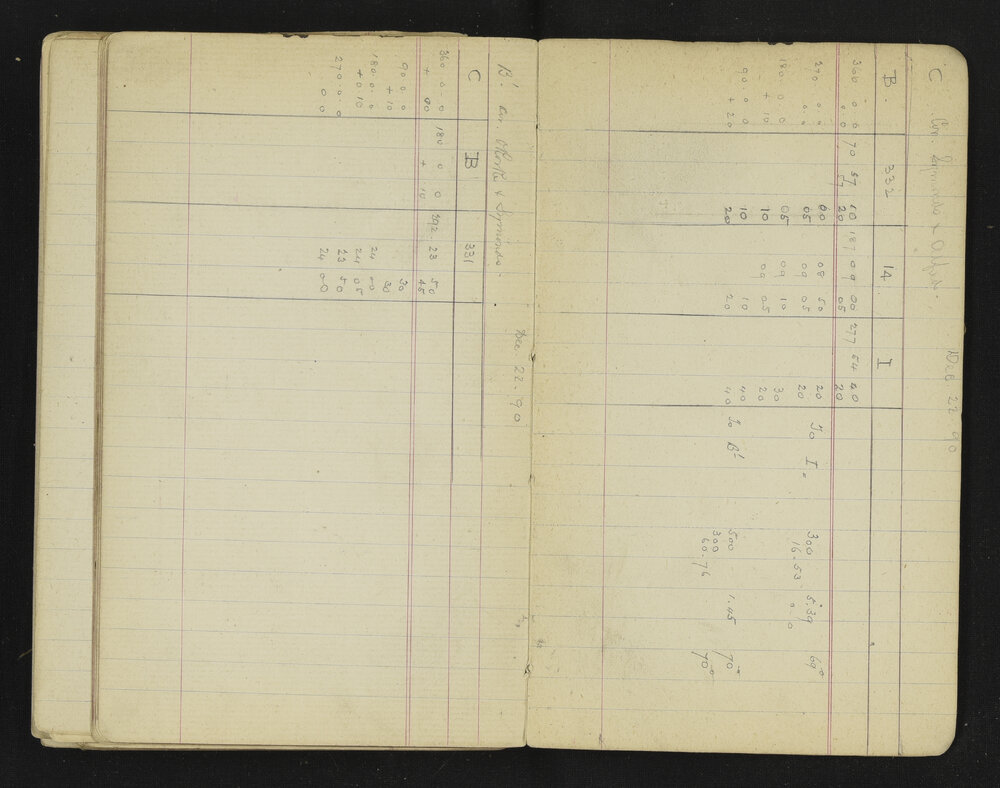 C Dec 22 90
B. 332 14 I
360 0 0 70 57 10 187 09 00 277 54 40
0 0 57 20 05 20
270 0 0 00 08 50 20 To I.
0 0 05 09 05 20 300 5.39 69°
180 0 0 05 09 10 30 16.53 0.0
+ 10 10 09 05 20
90 0 0 10 10 40
+ 20 20 20 40 To B' 500 1.45 70°
300 70°
60.76
B'. & Symonds. Dec. 22. 90
C B' 331
360 0 0 180 0 0 292 23 50
+ 00 + 10 45
90 0 0 30
+ 10 30
180 0 0 24 00
+ 0 10 24 05
270 0 0 23 50
0 0 24 00